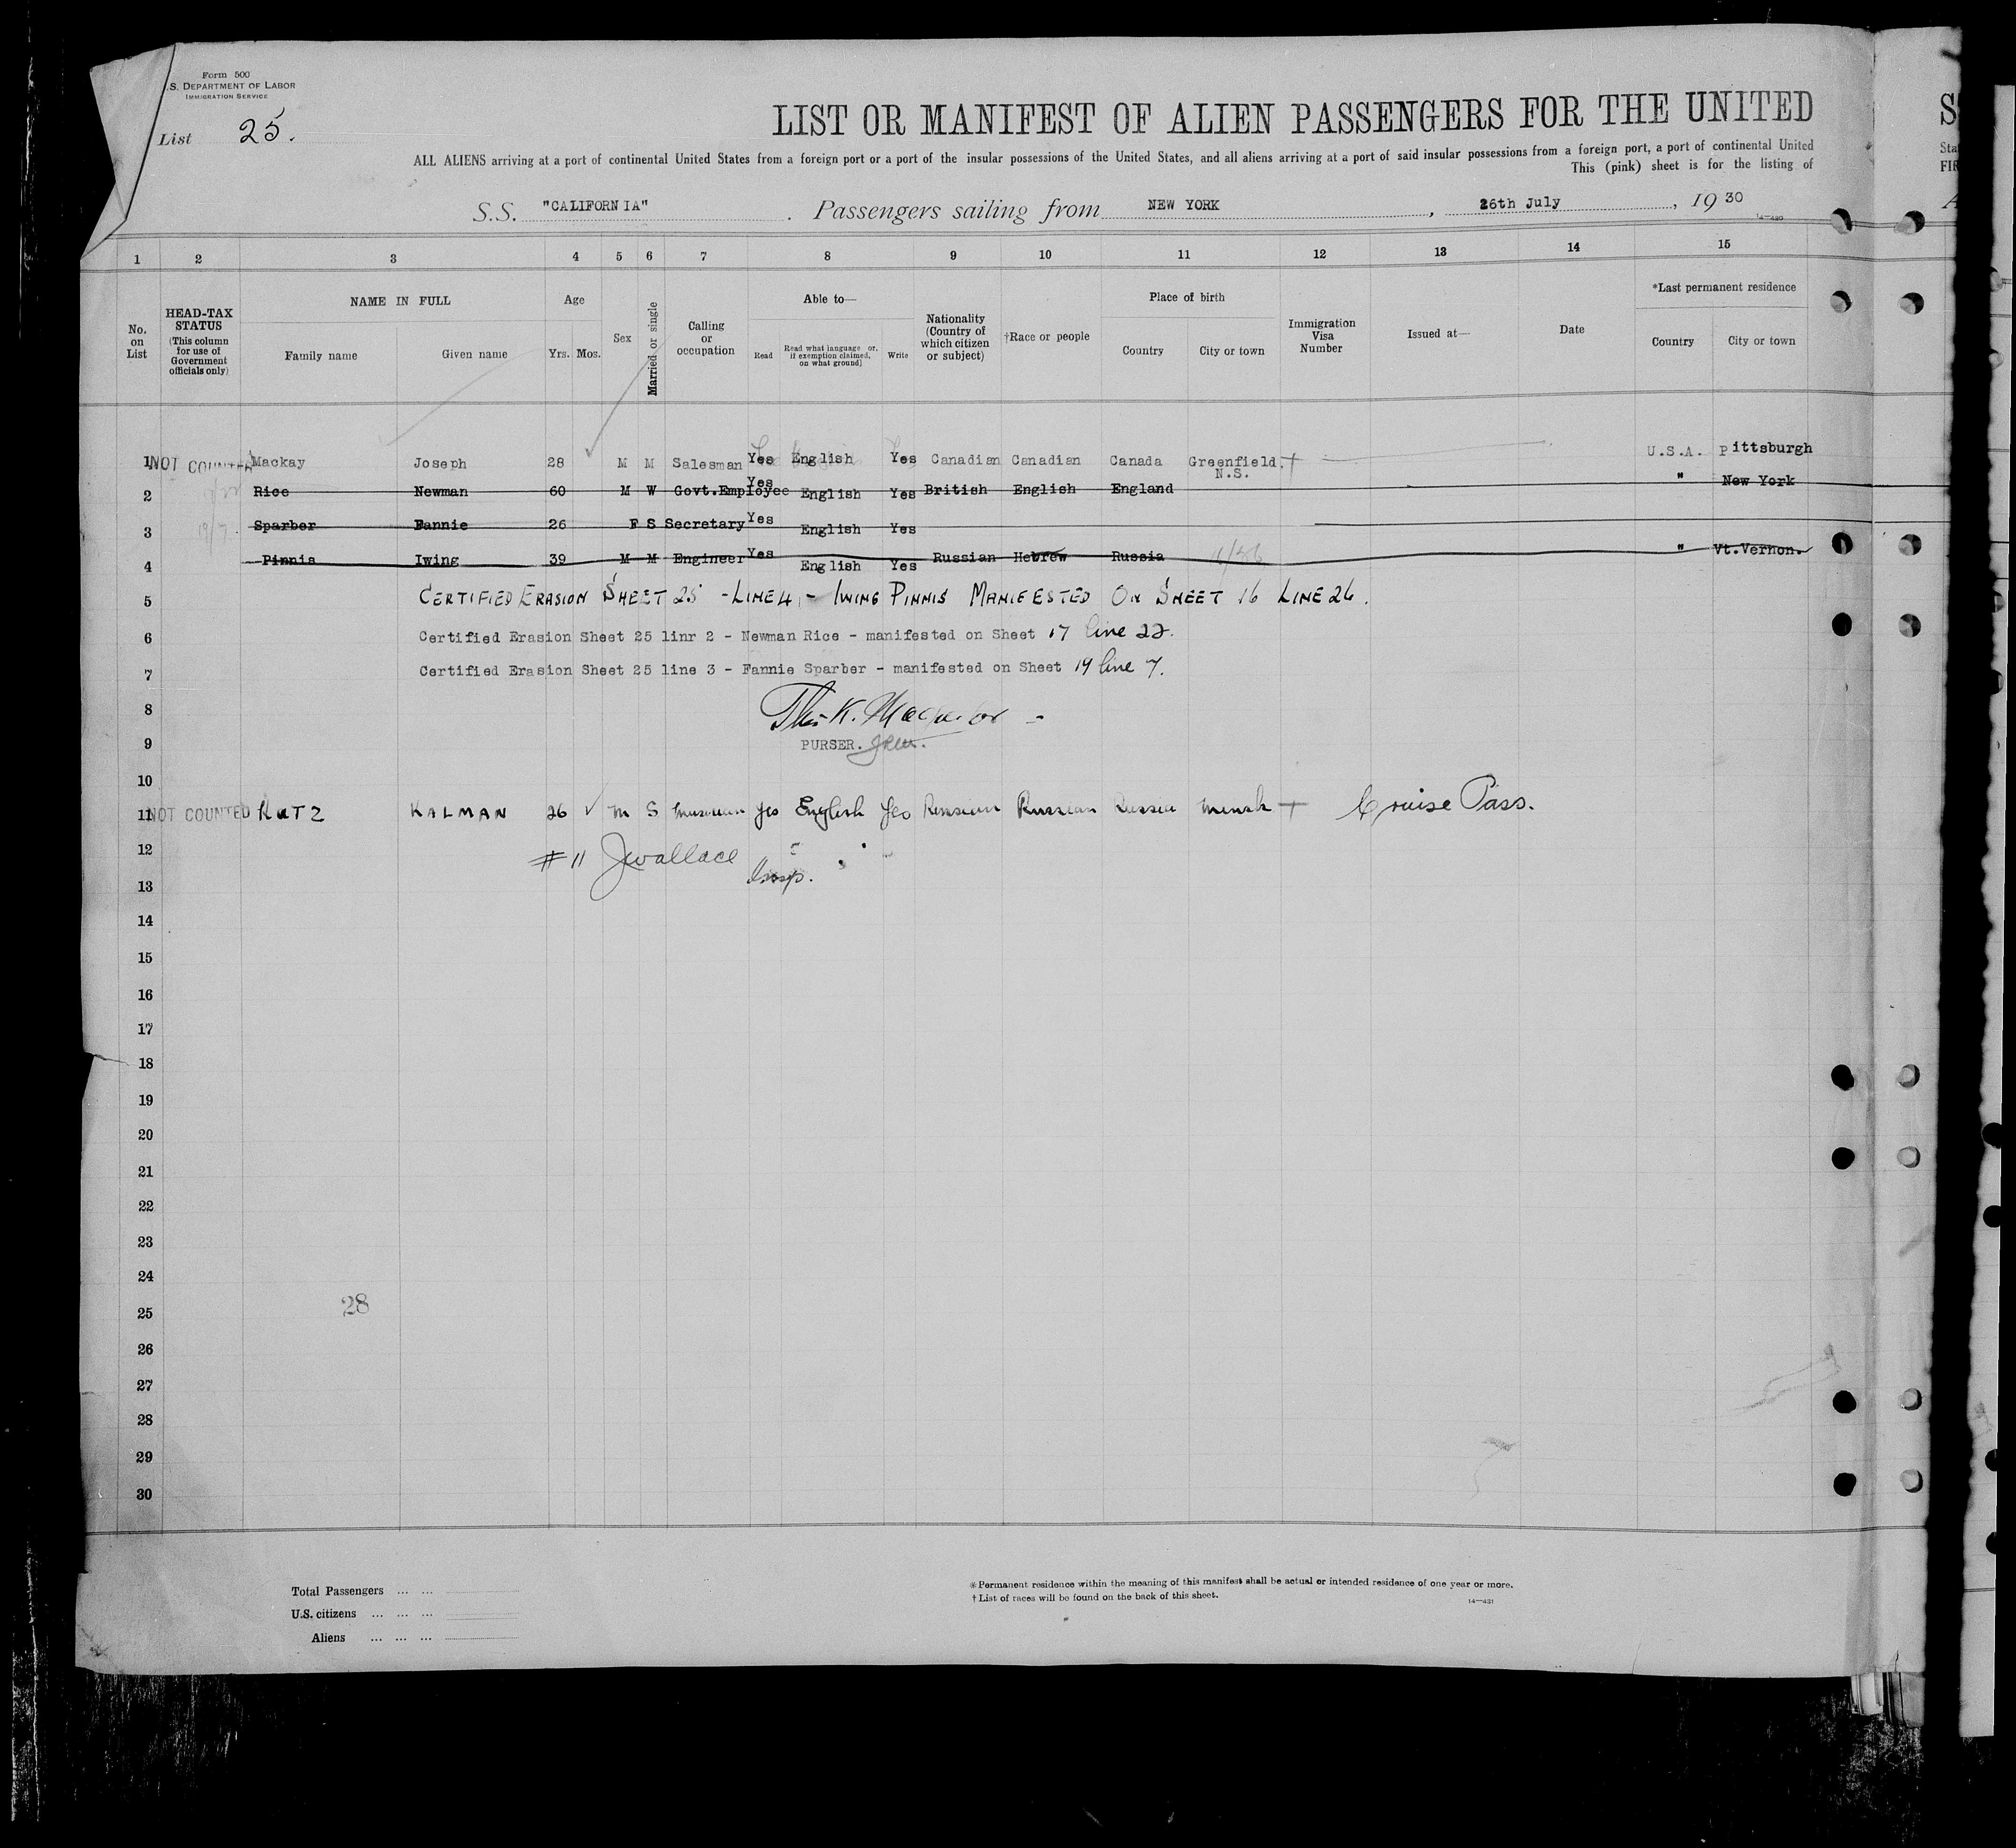 Form 500
.S. DEPARTMENT OF LABOR
IMMIGRATION SERVICE
List 25.
LIST OR MANIFEST OF ALIEN PASSENGERS FOR THE UNITED
ALL ALIENS arriving at a port of continental United States from a foreign port or a port of the insular possessions of the United States, and all aliens arriving at a port of said insular possessions from a foreign port, a port of continental United
This (pink) sheet is for the listing of
S.S. "CALIFORNIA" . Passengers sailing from NEW YORK , 26th July , 19 30
14—430
1 2 3 4 5 6 7 8 9 10 11 12 13 14 15
No. on List
HEAD-TAX STATUS
(This column for use of Government officials only)
NAME IN FULL
Family name Given name
Age
Yrs. Mos.
Sex
Married or single
Calling or occupation
Able to—
Read
Read what language or, if exemption claimed, on what ground)
Write
Nationality (Country of which citizen or subject)
†Race or people
Place of birth
Country City or town
Immigration Visa Number
Issued at—
Date
*Last permanent residence
Country City or town
1 NOT COUNTED Mackay Joseph 28 M M Salesman Yes English Yes Canadian Canadian Canada Greenfield. N.S. U.S.A. Pittsburgh
2 Rice Newman 60 M W Govt.Employee Yes English Yes British English England " New York
3 19/7 Sparber Fannie 26 F S Secretary Yes English Yes
4 Pinnis Iwing 39 M M Engineer Yes English Yes Russian Hebrew Russia " Vt.Vernon.
5 CERTIFIED ERASION SHEET 25 - LINE 4, - IWING PINNIS MANIFESTED ON SHEET 16 LINE 26.
6 Certified Erasion Sheet 25 linr 2 - Newman Rice - manifested on Sheet 17 line 22.
7 Certified Erasion Sheet 25 line 3 - Fannie Sparber - manifested on Sheet 19 line 7.
8
9 PURSER.
10
11 NOT COUNTED KATZ KALMAN 26 M S Musician Yes English Yes Russian Russian Russia Minsk Cruise Pass.
12 #11 JWallace
Insp.
13
14
15
16
17
18
19
20
21
22
23
24
28
25
26
27
28
29
30
Total Passengers ... ...
U.S. citizens ... ... ...
Aliens ... ... ...
*Permanent residence within the meaning of this manifest shall be actual or intended residence of one year or more.
†List of races will be found on the back of this sheet.
14—431